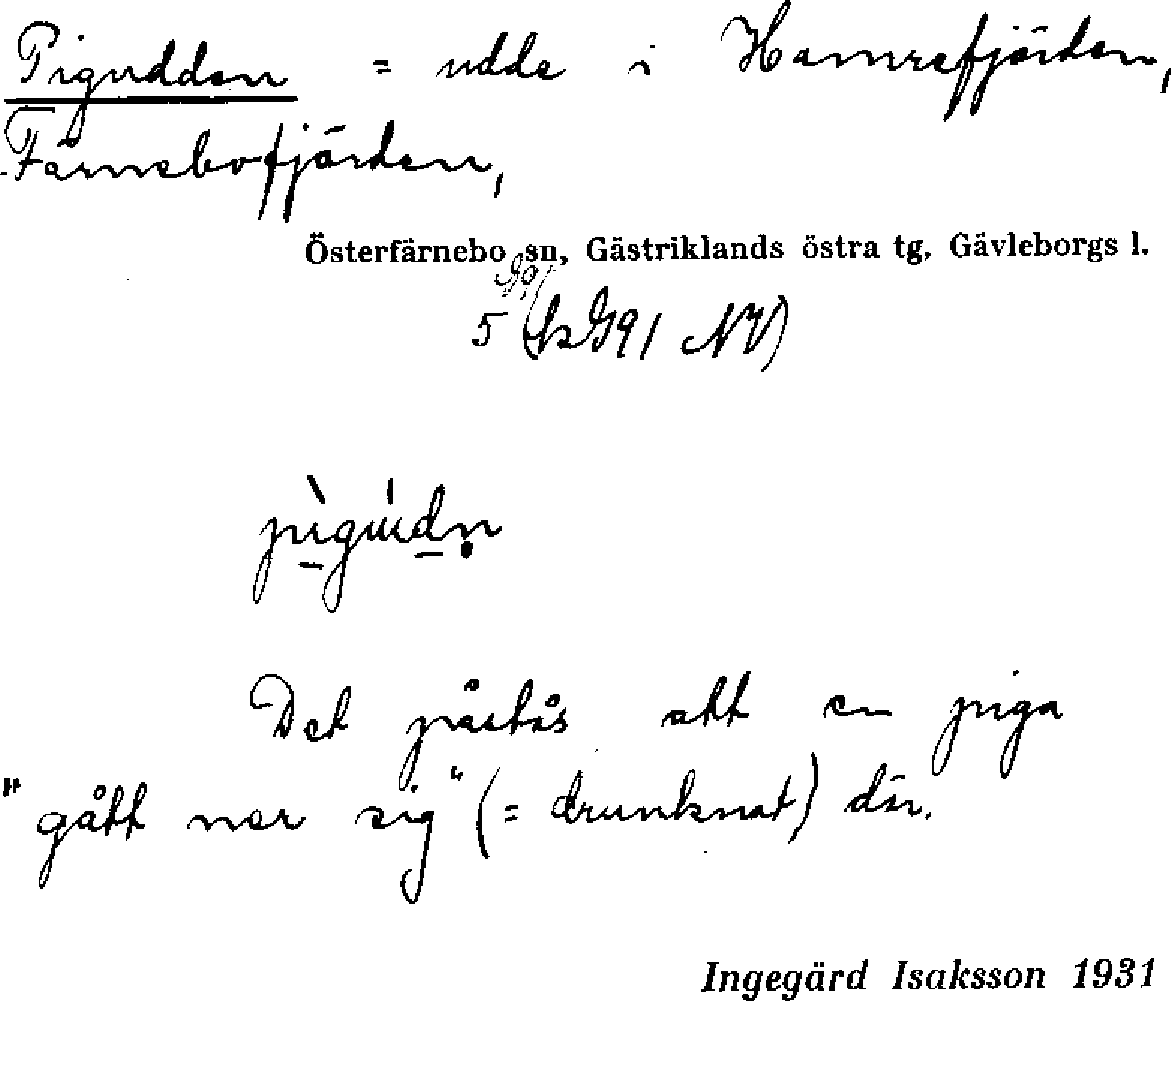 Pigudden = udde i Hamrefjärden,
Färnebofjärden,
Österfärnebo sn, Gästriklands östra tg, Gävleborgs l.
5 G91 NV)
Det påstås att en piga
"gått ner sig" (= drunknat) där.
Ingegärd Isaksson 1931